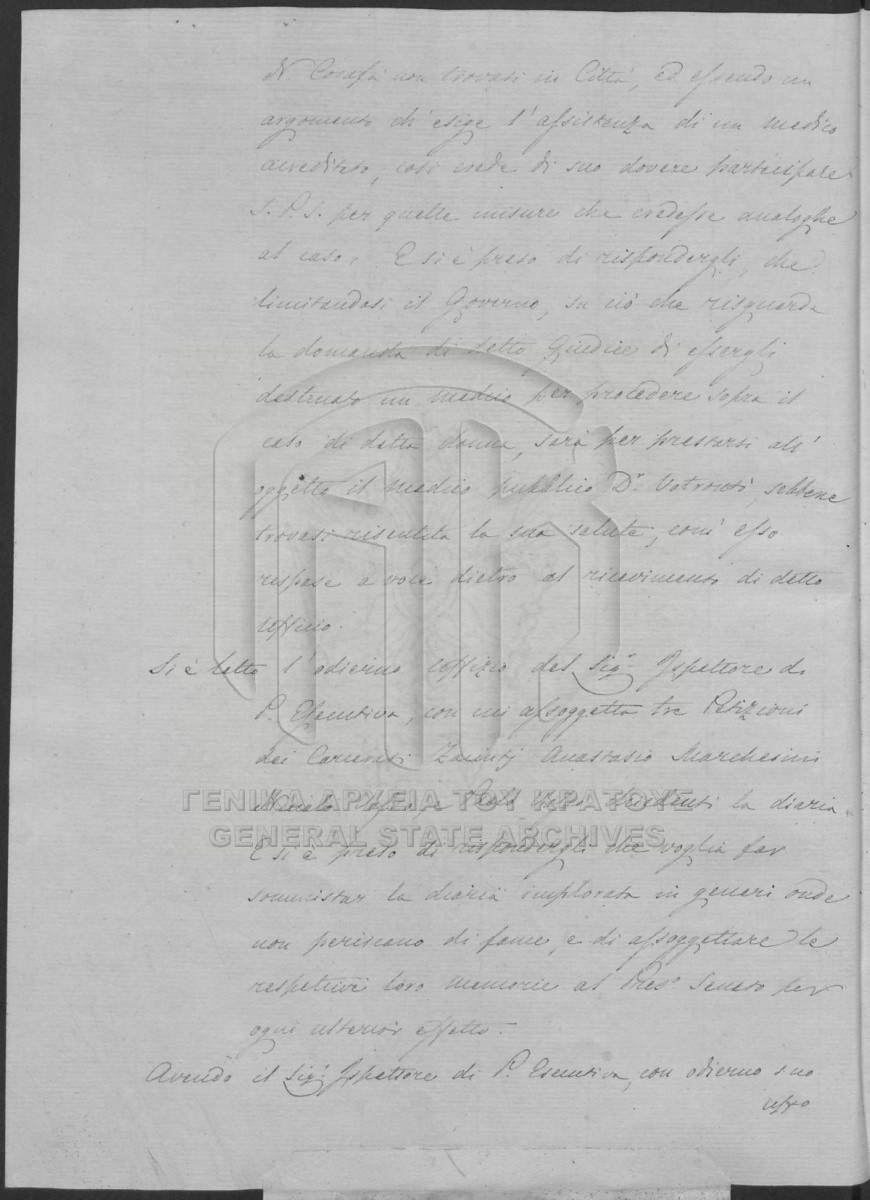 non trovasi in Città, ed essendo un
argomento ch'esige l'assistenza di un medico
accreditato, così crede di suo dovere participare
S. P. S. per quelle misure che credesse analoghe
al caso. E si è preso di rispondergli, che
limitandosi il Governo, su ciò che risguarda
la domanda di detto Giudice di essergli
destinato un medico per procedere sopra il
caso di detta donna, sarà per prestarsi all'
oggetto il medico pubblico Dr. sebbene
trovasi risentita la sua salute, com'esso
rispose a voce dietro al ricevimento di detto
Uffizio.
Si è letto l'odierno Uffizio del Sigr. Ispettore di
P. Esecutiva, con cui assoggetta tre Petizioni
dei Carcerati Anastasio Marchesini
e Paolo la diaria.
E si è preso di rispondergli che voglia far
somministrar la diaria implorata in generi onde
non periscano di fame, e di assoggettare le
respettive loro memorie al Pres. Senato per
ogni ulterior effetto.
Avendo il Sigr. Ispettore di P. Esecutiva, con odierno suo
uffo
ΓΕΝΙΚΑ ΑΡΧΕΙΑ ΤΟΥ ΚΡΑΤΟΥΣ
GENERAL STATE ARCHIVES